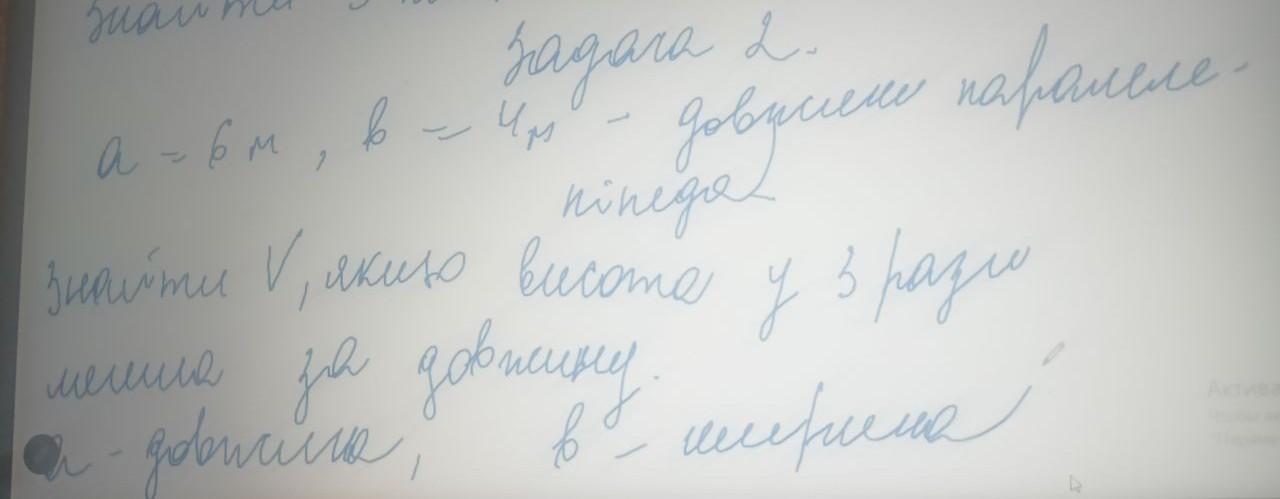 знайти
Задача 2.
a = 6 м, в = 4м - довжини паралеле-
піпеда
Знайти V, якщо висота у 3 рази
менша за довжину.
a - довжина, в - ширина
Актива